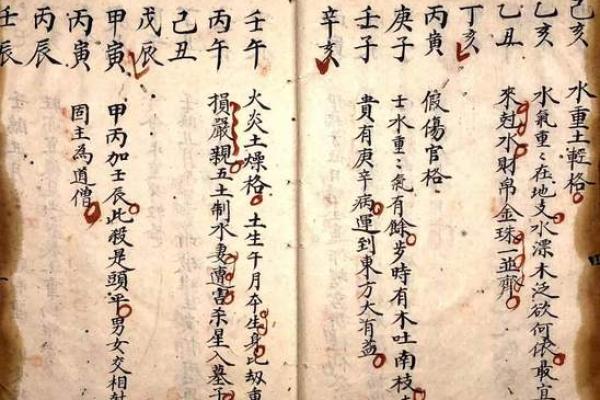 己亥 水重土輕格
乙亥 水氣重〻在地支水漂木泛欲何依最宜
乙丑 來尅水財帛金珠一並齊
丁亥
丙寅 假傷官格
庚子 士水重〻氣有餘步時有木吐南枝
壬子 貴有庚辛病運到東方大有益
辛亥
壬午 火炎土燥格 土生午月本生身比刼重
丙午 損嚴親五土制水妻遭害杀星入墓子
己丑
戊辰
甲寅 甲丙加壬辰此殺是頭平男女交相
丙寅 固主為道僧
丙辰
壬辰